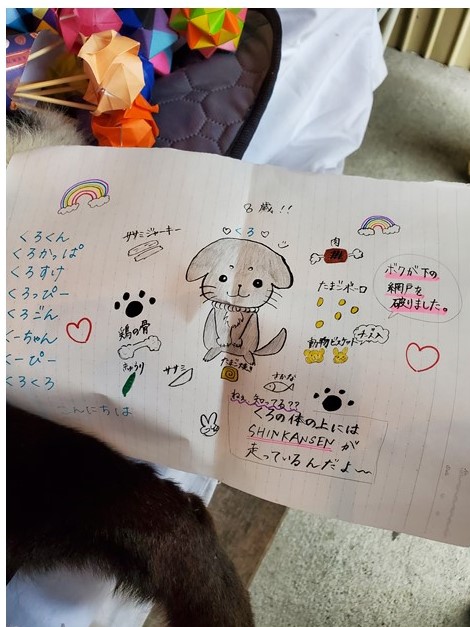 8歳!!
くろ
くろくん
くろかっぱ
くろすけ
くろっぴー
くろごん
くーちゃん
くーぴー
くろくろ
こんにちは
ササミジャーキー
鶏の骨
きゅうり
ササミ
たまご焼き
さかな
肉
たまごボーロ
動物ビスケット
チーズ入
ボクが下の
網戸を
破りました。
ねぇ、知ってる??
くろの体の上には
SHINKANSENが
走っているんだよ〜